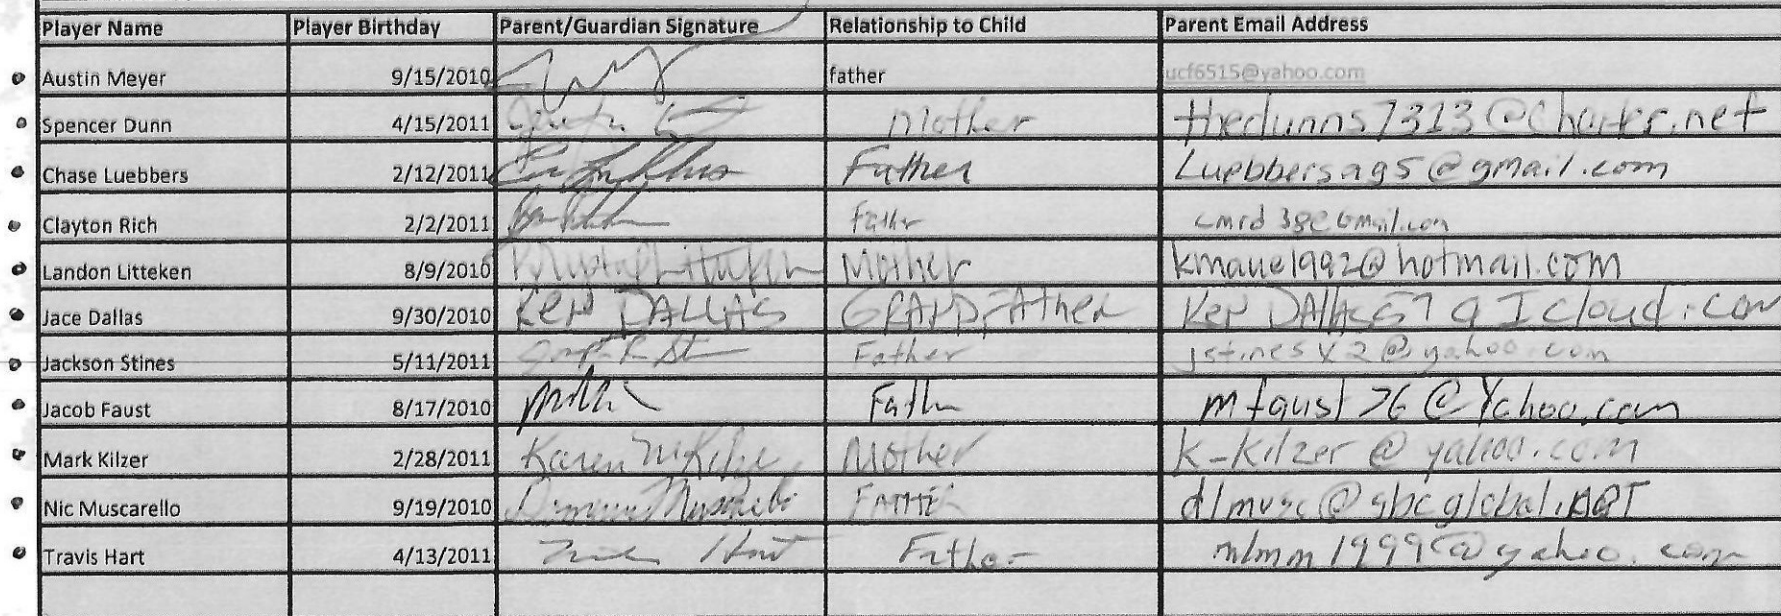 Player Name Player Birthday Parent/Guardian Signature Relationship to Child Parent Email Address
Austin Meyer 9/15/2010 father ucf6515@yahoo.com
Spencer Dunn 4/15/2011 Mother thedunns7313@Charter.net
Chase Luebbers 2/12/2011 Father Luebbersag5@gmail.com
Clayton Rich 2/2/2011 Father
Landon Litteken 8/9/2010 Mother kmaue1992@hotmail.com
Jace Dallas 9/30/2010 Ken DALLAS GRANDFAther
Jackson Stines 5/11/2011 Father jstinesx2@yahoo.com
Jacob Faust 8/17/2010 Father mfaust76@Yahoo.com
Mark Kilzer 2/28/2011 Karen M Kilzer Mother k-kilzer@yahoo.com
Nic Muscarello 9/19/2010 FATHER dlmusc@sbcglobal.NET
Travis Hart 4/13/2011 Father mlmm1999@yahoo.com